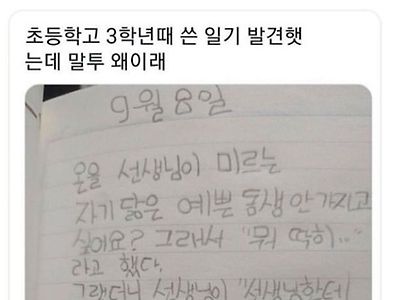 초등학교 3학년때 쓴 일기 발견햇
는데 말투 왜이래
9월 8일
온을 선생님이 미르는
자기 닮은 예쁜 동생 안 가지고
싶어요? 그래서 "뭐 딱히..."
라고 했다.
그랬더니 선생님이 "선생님한테